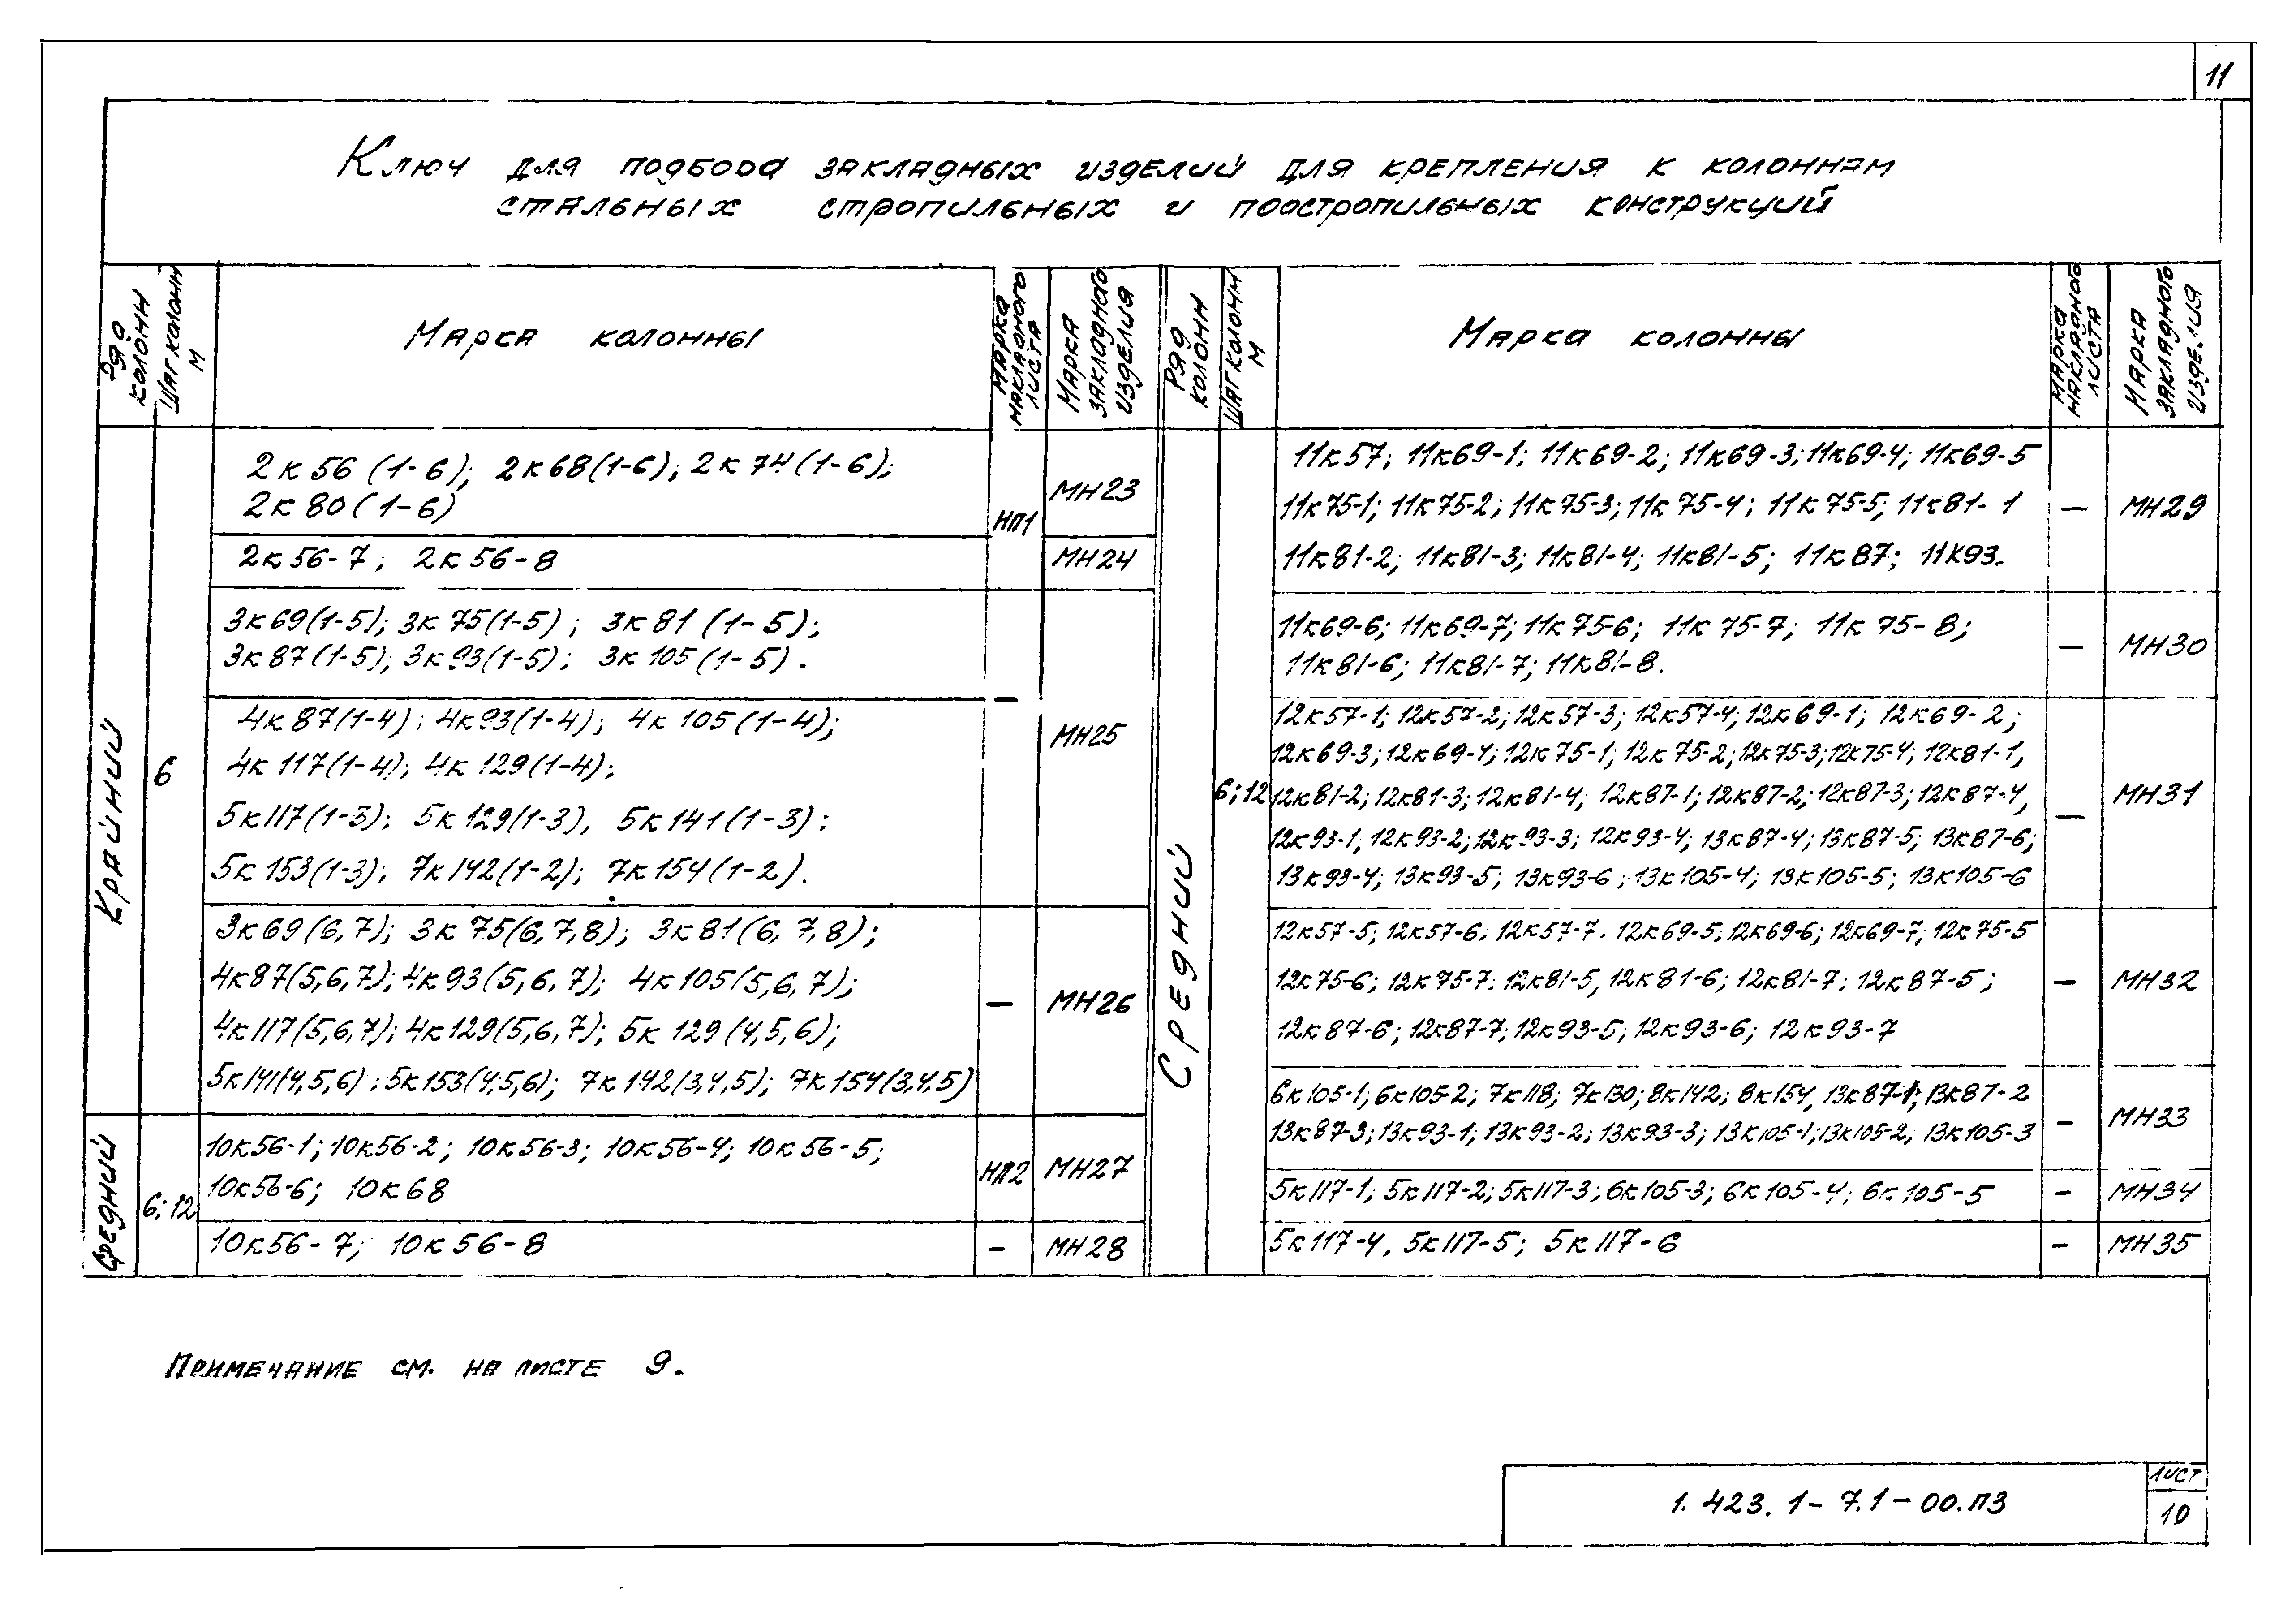 11
Ключ для подбора закладных изделий для крепления к колоннам
стальных стропильных и подстропильных конструкций
Ряд колонн
Шаг колонн м
Марка колонны
Марка накладного листа
Марка закладного изделия
Ряд колонн
Шаг колонн м
Марка колонны
Марка накладного листа
Марка закладного изделия
Крайний
6
2к56 (1-6); 2к68(1-6); 2к74(1-6);
2к80(1-6)
НП1
МН23
2к56-7; 2к56-8
МН24
3к69(1-5); 3к75(1-5); 3к81(1-5);
3к87(1-5); 3к93(1-5); 3к105(1-5).
—
4к87(1-4); 4к93(1-4); 4к105(1-4);
4к117(1-4); 4к129(1-4);
5к117(1-3); 5к129(1-3), 5к141(1-3);
5к153(1-3); 7к142(1-2); 7к154(1-2).
МН25
3к69(6,7); 3к75(6,7,8); 3к81(6,7,8);
4к87(5,6,7); 4к93(5,6,7); 4к105(5,6,7);
4к117(5,6,7); 4к129(5,6,7); 5к129(4,5,6);
5к141(4,5,6); 5к153(4,5,6); 7к142(3,4,5); 7к154(3,4,5)
—
МН26
Средний
6; 12
10к56-1; 10к56-2; 10к56-3; 10к56-4; 10к56-5;
10к56-6; 10к68
НП2
МН27
10к56-7; 10к56-8
—
МН28
Средний
6; 12
11к57; 11к69-1; 11к69-2; 11к69-3; 11к69-4; 11к69-5
11к75-1; 11к75-2; 11к75-3; 11к75-4; 11к75-5; 11к81-1
11к81-2; 11к81-3; 11к81-4; 11к81-5; 11к87; 11к93.
—
МН29
11к69-6; 11к69-7; 11к75-6; 11к75-7; 11к75-8;
11к81-6; 11к81-7; 11к81-8.
—
МН30
12к57-1; 12к57-2; 12к57-3; 12к57-4; 12к69-1; 12к69-2;
12к69-3; 12к69-4; 12к75-1; 12к75-2; 12к75-3; 12к75-4; 12к81-1,
12к81-2; 12к81-3; 12к81-4; 12к87-1; 12к87-2; 12к87-3; 12к87-4,
12к93-1; 12к93-2; 12к93-3; 12к93-4; 13к87-4; 13к87-5; 13к87-6;
13к93-4; 13к93-5; 13к93-6; 13к105-4; 13к105-5; 13к105-6
—
МН31
12к57-5; 12к57-6; 12к57-7. 12к69-5; 12к69-6; 12к69-7; 12к75-5
12к75-6; 12к75-7; 12к81-5, 12к81-6; 12к81-7; 12к87-5;
12к87-6; 12к87-7; 12к93-5; 12к93-6; 12к93-7
—
МН32
6к105-1; 6к105-2; 7к118; 7к130; 8к142; 8к154, 13к87-1; 13к87-2
13к87-3; 13к93-1; 13к93-2; 13к93-3; 13к105-1; 13к105-2; 13к105-3
—
МН33
5к117-1; 5к117-2; 5к117-3; 6к105-3; 6к105-4; 6к105-5
—
МН34
5к117-4, 5к117-5; 5к117-6
—
МН35
Примечание см. на листе 9.
1.423.1-7.1-00.ПЗ
Лист
10